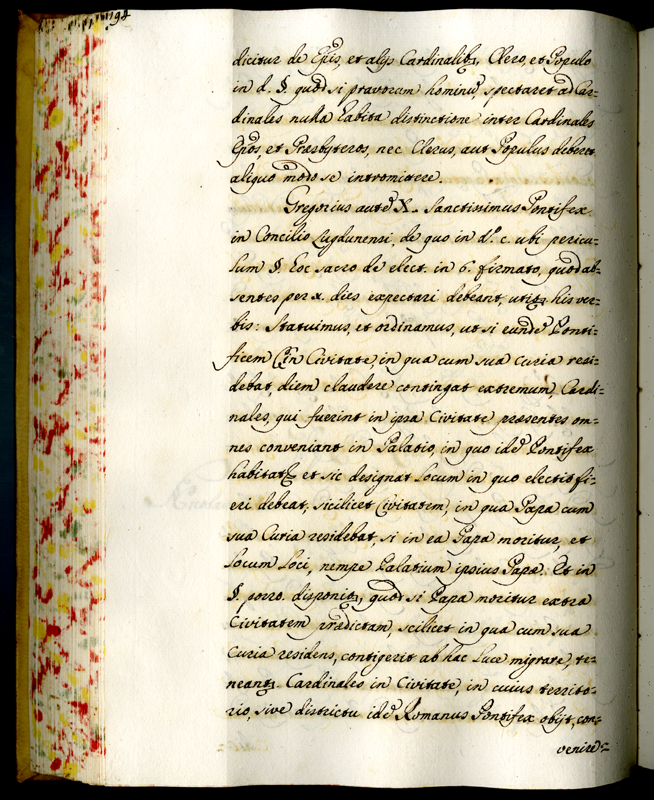 dicitur de Epis, et alijs Cardinalibꝫ, Clero, et Populo
in d. §. quod si pravorum hominũ, spectaret ad Car=
dinales nulla habita distinctione inter Cardinales
Epos, et Præsbyteros, nec Clerus, aut Populus deberet
aliquo modo se intromittere.
Gregorius autẽ X. Sanctissimus Pontifex
in Concilio Lugdunensi, de quo in dº. c. ubi pericu=
lum §. hoc sacro de elect. in 6. firmato, quod ab=
sentes per x. dies expectari debeant, utitꝫ his ver=
bis: Statuimus, et ordinamus, ut si eundẽ Ponti=
ficem in Civitate, in qua cum sua curia resi=
debat, diem claudere contingat extremum, Cardi=
nales, qui fuerint in ipsa Civitate præsentes om=
nes conveniant in Palatio, in quo idẽ Pontifex
habitatꝫ et sic designat Locum in quo electio fi=
eri debeat, scilicet Civitatem, in qua Papa cum
sua Curia residebat, si in ea Papa moritur, et
Locum Loci, nempe Palatium ipsius Papæ. Et in
§. porro. disponitꝫ, quod si Papa moritur extra
Civitatem prædictam, scilicet in qua cum sua
Curia residens, contigerit ab hac Luce migrare, te=
neantꝫ. Cardinales in Civitate, in cuius territo=
rio, sive districtu idẽ Romanus Pontifex obijt, con=
venire=